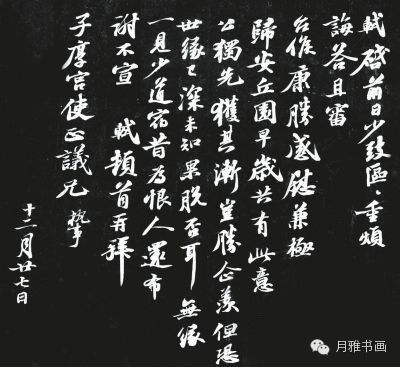 軾啓前日少致區〻重煩
誨答且審
台候康勝感慰兼極
歸安丘園早歲共有此意
公獨先獲其漸豈勝企羨但恐
世緣已深未知果脫否耳無緣
一見少道宿昔為恨人還布
謝不宣 軾頓首再拜
子厚宮使正議兄 執事
十二月廿七日
月雅书画